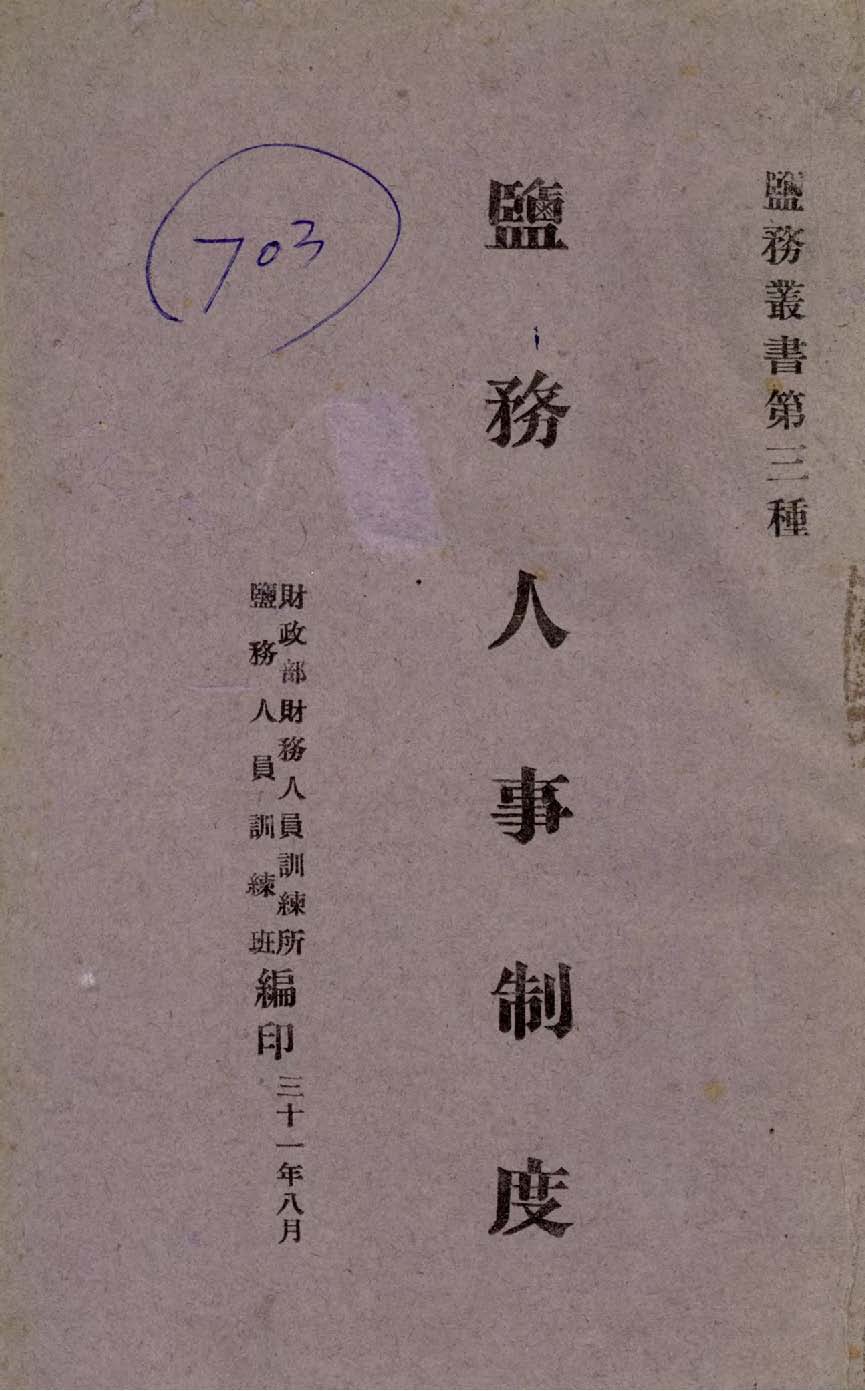 鹽務叢書第三種
鹽務人事制度
財政部財務人員訓練所
鹽務人員訓練班
編印
三十一年八月
703